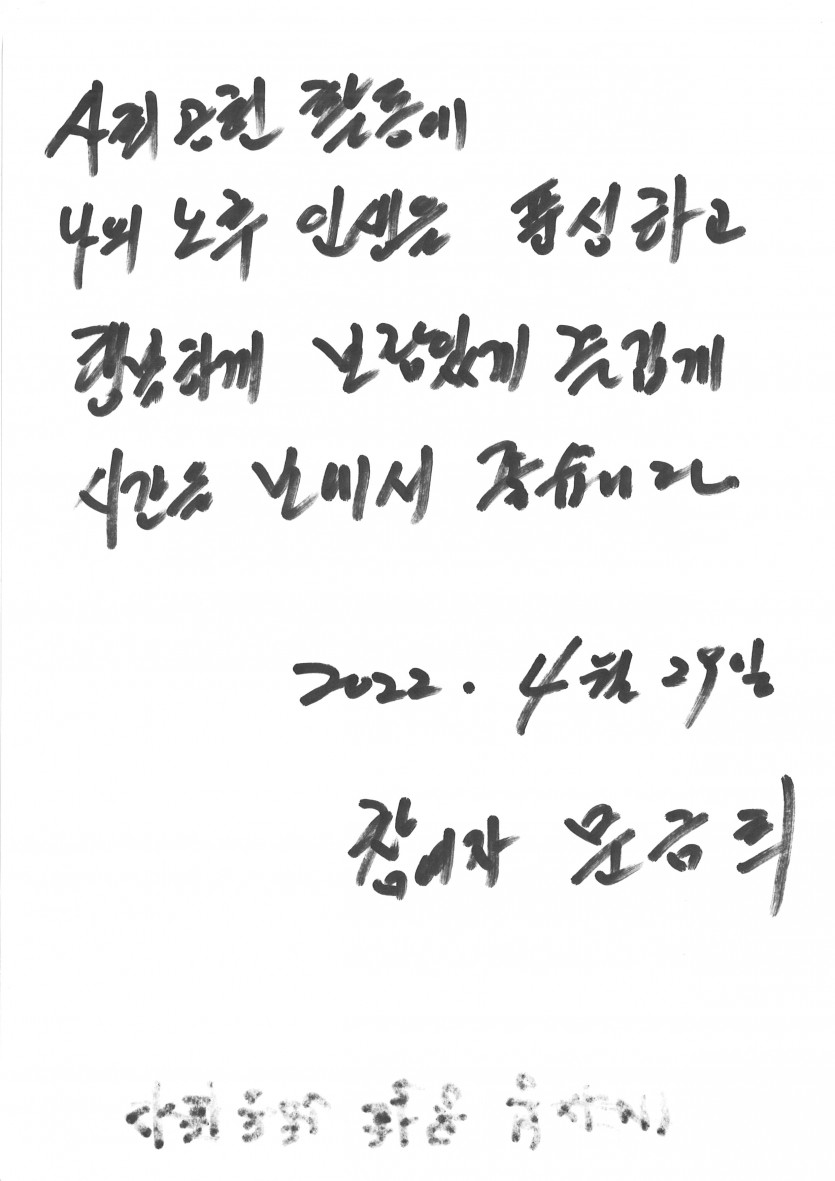 사회공헌 활동에
나의 노후 인생을 풍성하고
행복하게 보람있게 즐겁게
시간을 보내서 좋습니다
2022. 4월 29일
참여자 문금희